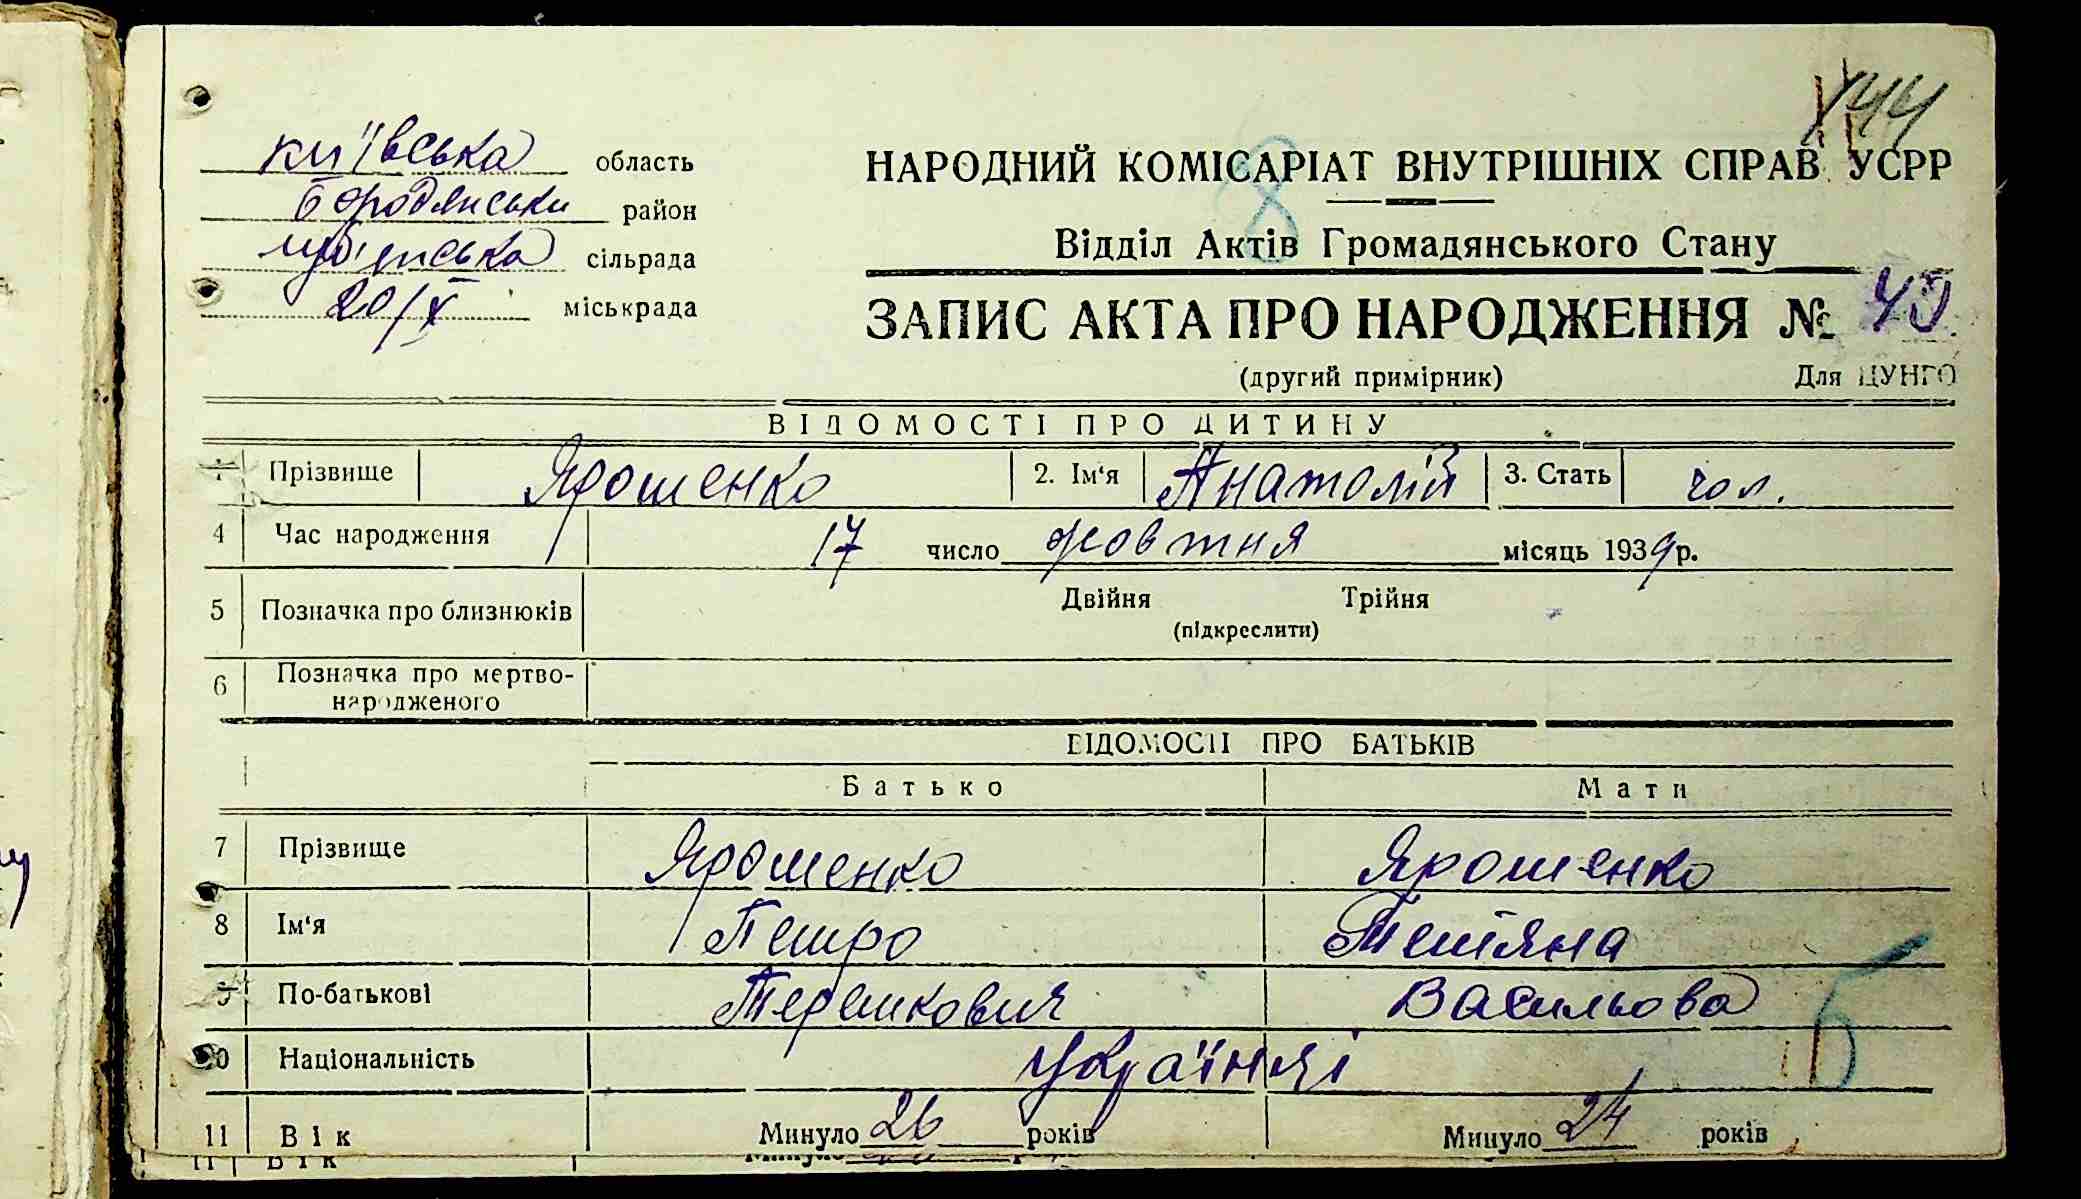 144
київська область
бородянськи район
сільрада
20/X міськрада
НАРОДНИЙ КОМІСАРІАТ ВНУТРІШНІХ СПРАВ УСРР
8
Відділ Актів Громадянського Стану
ЗАПИС АКТА ПРО НАРОДЖЕННЯ №
(другий примірник) Для ЦУНГО
ВІДОМОСТІ ПРО ДИТИНУ
Прізвище Ярошенко 2. Ім'я Анатолій 3. Стать чол.
4 Час народження 17 число жовтня місяць 1939 р.
5 Позначка про близнюків Двійня Трійня
(підкреслити)
6 Позначка про мертво-
народженого
ВІДОМОСТІ ПРО БАТЬКІВ
Батько Мати
7 Прізвище Ярошенко Ярошенко
8 Ім'я Петро Тетяна
9 По-батькові Терешкович Васильова
10 Національність українці
11 Вік Минуло 26 років Минуло 24 років
11 Вік Минуло